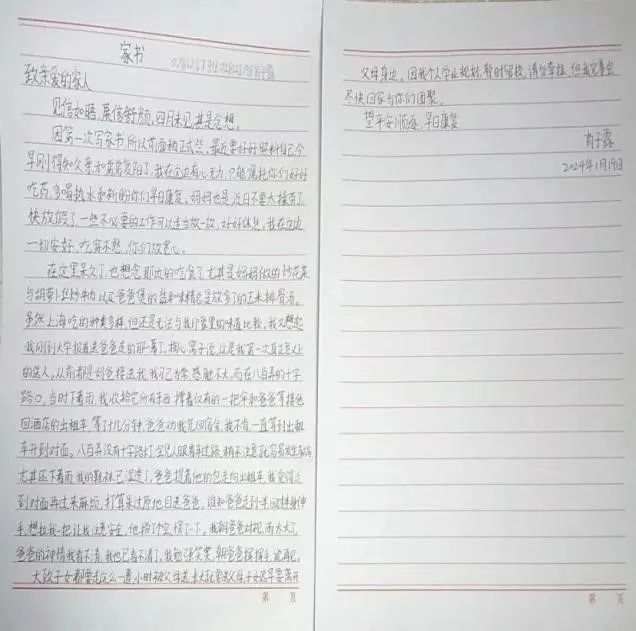 家书
致亲爱的家人
见信如晤，展信舒颜，四月未见，甚是念想。
因第一次写家书所以前面稍正式些，最近要好好照料自己，今
早刚得知父亲和黄黄复阳了，我在这边有心无力，只能嘱托你们好好
吃药，多喝热水和祈盼你们早日康复，妈妈也是，近日不要太操劳了，
快放假了，一些不必要的工作可以适当放一放，好好休息，我在这边
一切安好，吃穿不愁，你们放宽心。
在这里呆久了，也想念那边的吃食了，尤其是妈妈做的炒花菜
与胡萝卜丝炒牛肉以及爸爸煲的盐和味精总是放多了的玉米排骨汤。
虽然上海吃的种类多样，但还是无法与我们家里的味道比较，我又想起
我刚到大学报道送爸爸走的那一幕了，掏心窝子说，这是我第一次真正意义上
的送人。从前都是别爸接送我，我习已为常，感触不大，而在八百弄的十字
路口，当时下着雨，我收拾完所有东西撑着仅有的一把伞和爸爸等接他
回酒店的出租车，等了十几分钟，爸爸劝我先回宿舍，我不肯，一直等到出租
车开到对面。八百弄没有十字路灯，全凭人眼看车过路，稍不注意就容易发生事故
尤其还下着雨，我的鞋袜已湿透了，爸爸提着他的包走向出租车，我觉得走
到对面再过来麻烦，打算呆在原地目送爸爸，谁知爸爸走到一半，回过身伸
手，想拉我一把让我注意安全，他捞了个空，愣了一下。我朝爸爸对视，雨太大了，
爸爸的神情我看不清了，我也看不清了，我勉强笑笑，朝爸爸挥挥手，说再见。
大致子女都要走这么一遭，小时被父母送，长大就要送父母，子女迟早要离开
父母身边。因我个人学业规划，暂时留校，请勿牵挂，但我定会
尽快回家与你们团聚。
望平安顺遂，早日康复
肖子露
2024年1月19日
第 页
第 页